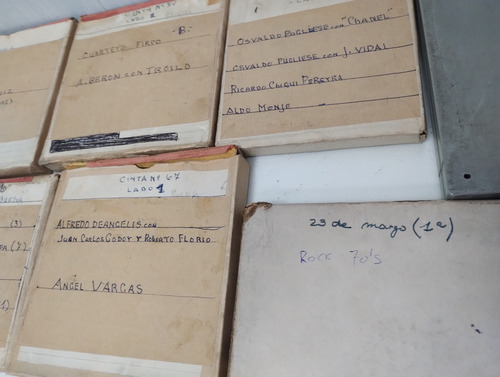 LADO 2
-B-
CUARTETO FIRPO
A. BERON CON TROILO
OSVALDO PUGLIESE CON "CHANEL"
OSVALDO PUGLIESE CON J. VIDAL
RICARDO CHIQUI PEREYRA
ALDO MONJE
CINTA Nº 67
LADO 1
ALFREDO DEANGELIS CON
JUAN CARLOS GODOY Y ROBERTO FLORIO
ANGEL VARGAS
(3)
23 de mayo (1ª)
ROCK 70'S